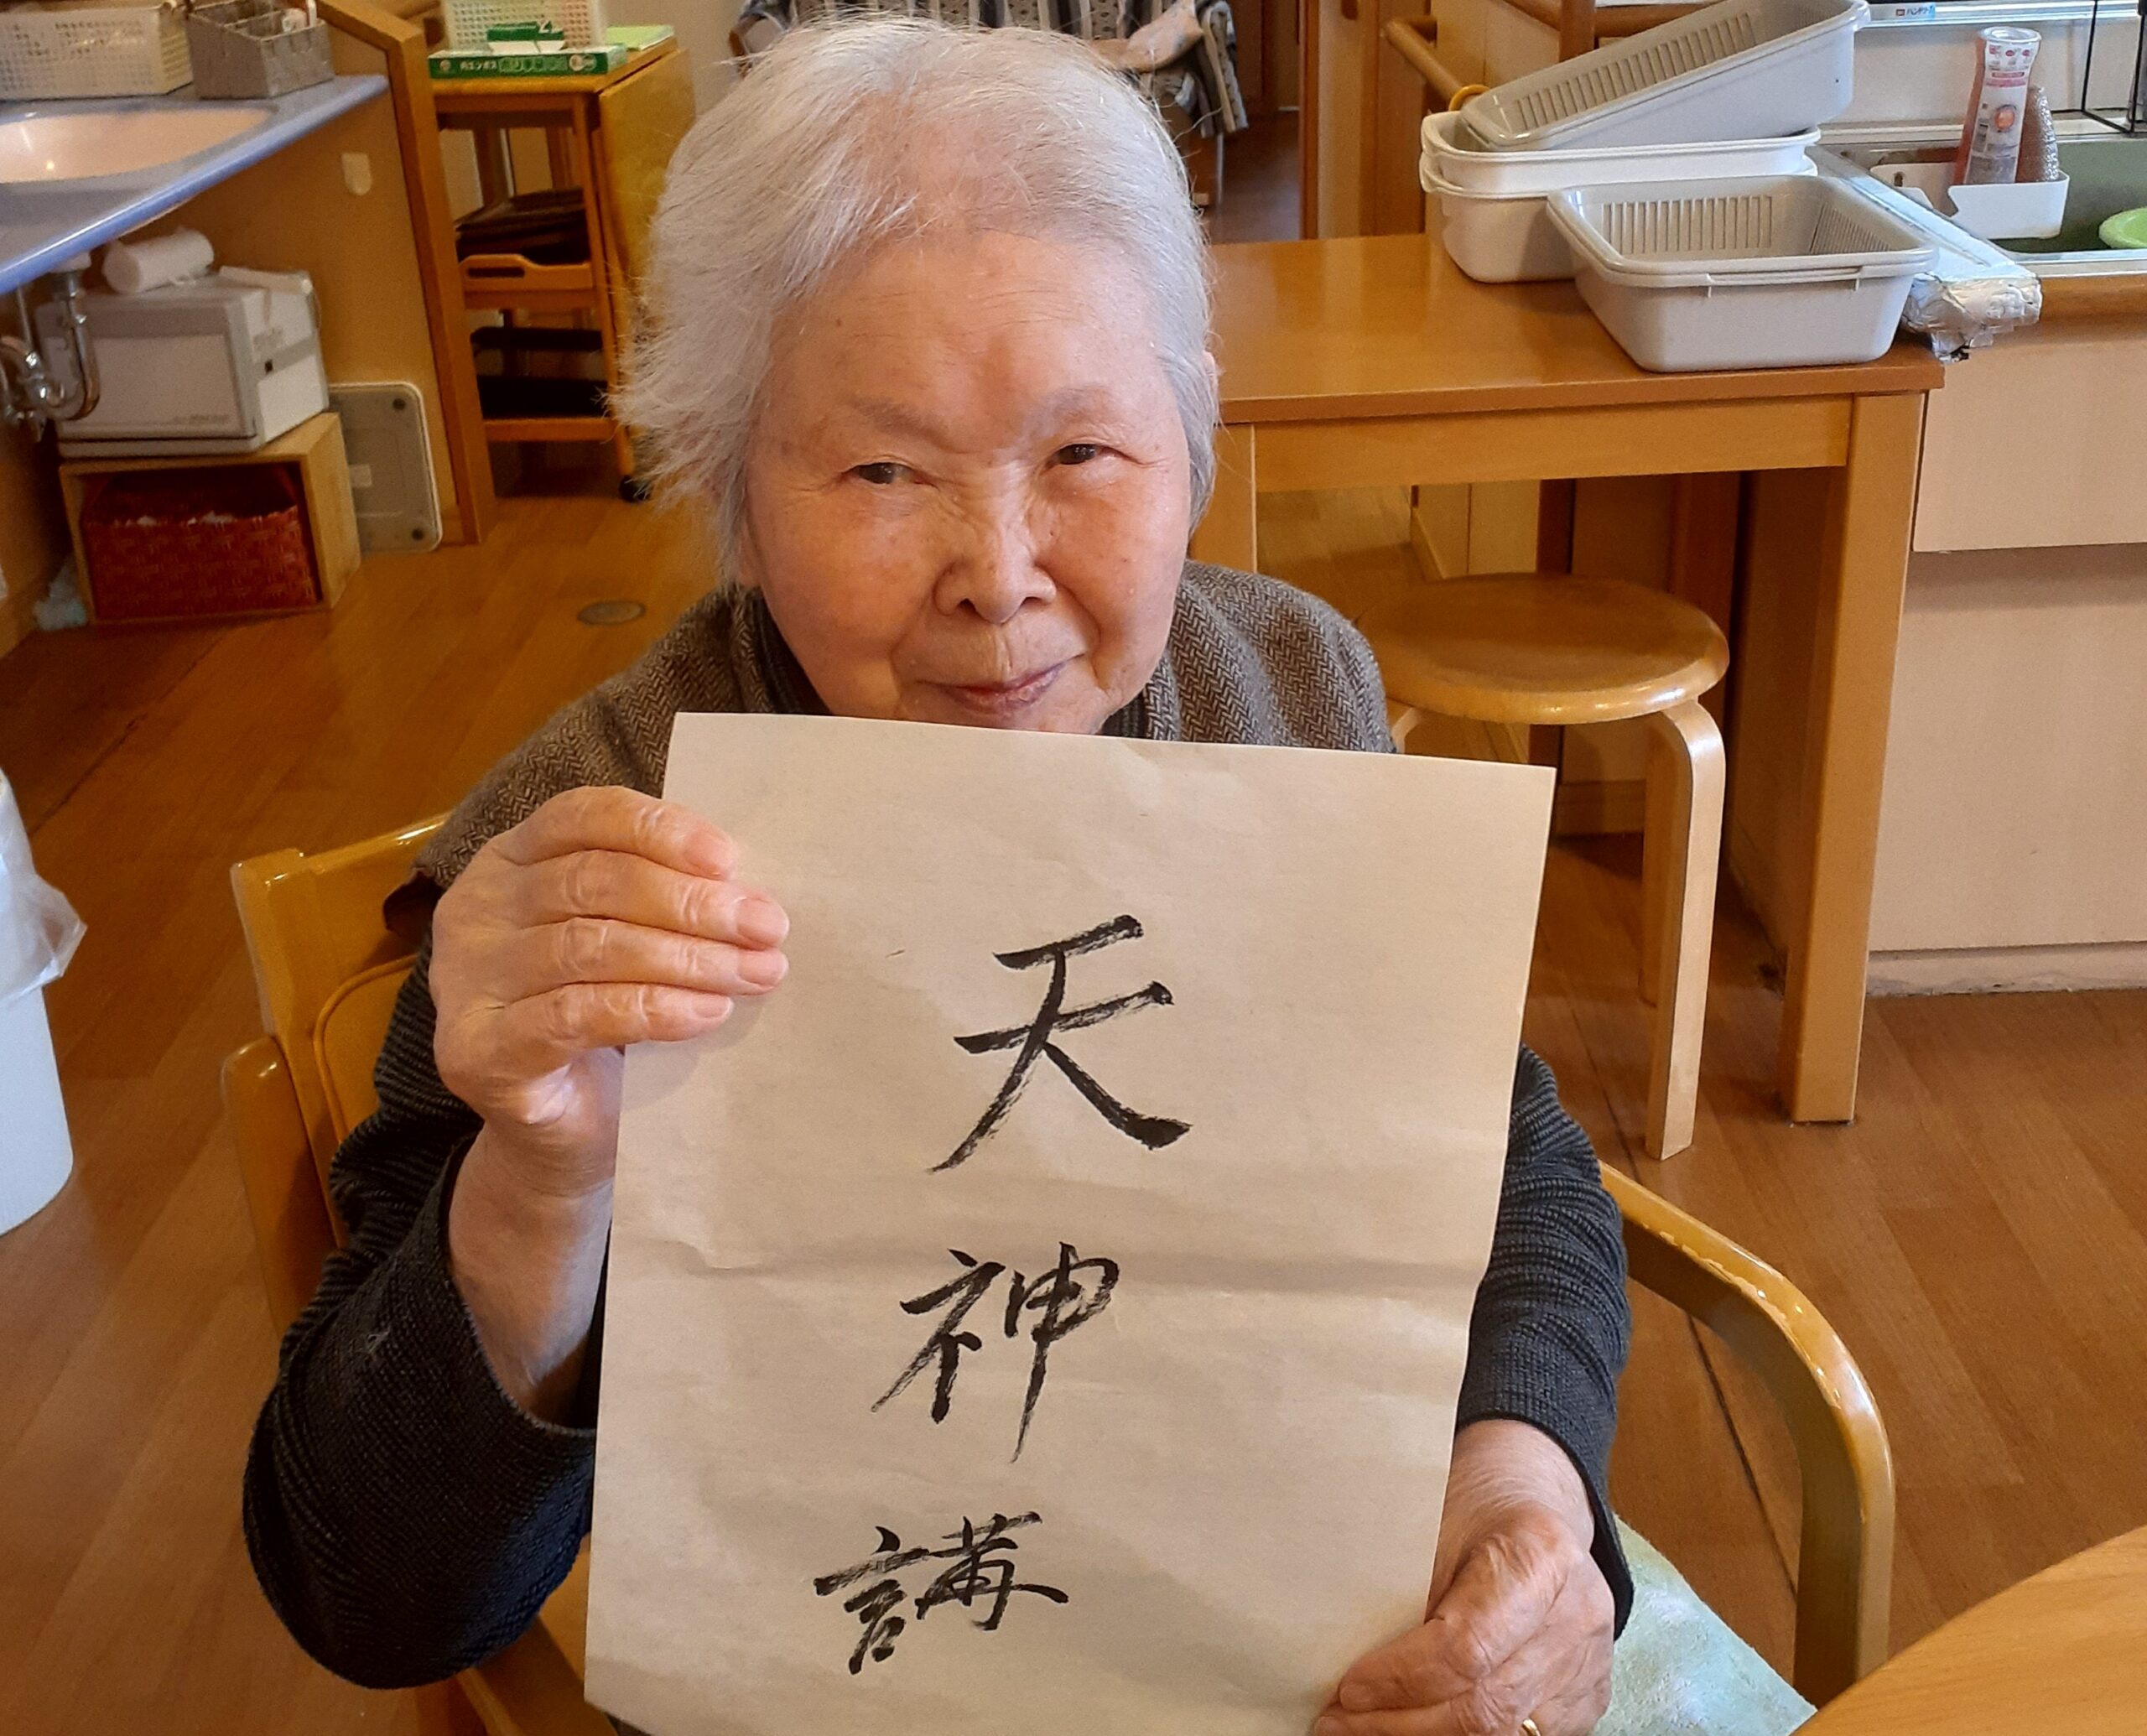 天神講